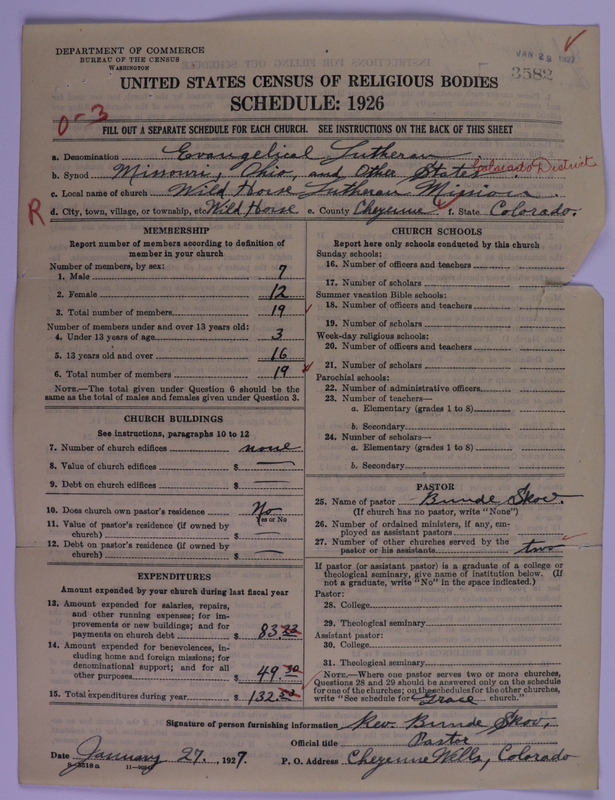 DEPARTMENT OF COMMERCE
BUREAU OF THE CENSUS
WASHINGTON
JAN 29 1927
3582
UNITED STATES CENSUS OF RELIGIOUS BODIES
SCHEDULE: 1926
0-3
FILL OUT A SEPARATE SCHEDULE FOR EACH CHURCH. SEE INSTRUCTIONS ON THE BACK OF THIS SHEET
a. Denomination Evangelical Lutheran
b. Synod Missouri, Ohio, and Other States Colorado District
c. Local name of church Wild Horse Lutheran Mission.
R
d. City, town, village, or township, etc. Wild Horse e. County Cheyenne. f. State Colorado.
MEMBERSHIP
Report number of members according to definition of
member in your church
Number of members, by sex:
1. Male 7
2. Female 12
3. Total number of members 19
Number of members under and over 13 years old:
4. Under 13 years of age 3
5. 13 years old and over 16
6. Total number of members 19
NOTE.—The total given under Question 6 should be the
same as the total of males and females given under Question 3.
CHURCH BUILDINGS
See instructions, paragraphs 10 to 12
7. Number of church edifices none
8. Value of church edifices $ —
9. Debt on church edifices $ —
10. Does church own pastor's residence? No
Yes or No
11. Value of pastor's residence (if owned by
church) $ —
12. Debt on pastor's residence (if owned by
church) $ —
EXPENDITURES
Amount expended by your church during last fiscal year
13. Amount expended for salaries, repairs,
and other running expenses; for im-
provements or new buildings; and for
payments on church debt $ 83.
14. Amount expended for benevolences, in-
cluding home and foreign missions; for
denominational support; and for all
other purposes $ 49.
15. Total expenditures during year $ 132.
CHURCH SCHOOLS
Report here only schools conducted by this church
Sunday schools:
16. Number of officers and teachers
17. Number of scholars
Summer vacation Bible schools:
18. Number of officers and teachers
19. Number of scholars
Week-day religious schools:
20. Number of officers and teachers
21. Number of scholars
Parochial schools:
22. Number of administrative officers
23. Number of teachers—
a. Elementary (grades 1 to 8)
b. Secondary
24. Number of scholars—
a. Elementary (grades 1 to 8)
b. Secondary
PASTOR
25. Name of pastor Bunde Skov.
(If church has no pastor, write "None")
26. Number of ordained ministers, if any, em-
ployed as assistant pastors
27. Number of other churches served by the
pastor or his assistants two
If pastor (or assistant pastor) is a graduate of a college or
theological seminary, give name of institution below. (If
not a graduate, write "No" in the space indicated.)
Pastor:
28. College
29. Theological seminary
Assistant pastor:
30. College
31. Theological seminary
NOTE.—Where one pastor serves two or more churches,
Questions 28 and 29 should be answered only on the schedule
for one of the churches; on the schedules for the other churches,
write "See schedule for Grace church."
Signature of person furnishing information Rev. Bunde Skov.
Official title Pastor
Date January 27, 1927. P. O. Address Cheyenne Wells, Colorado